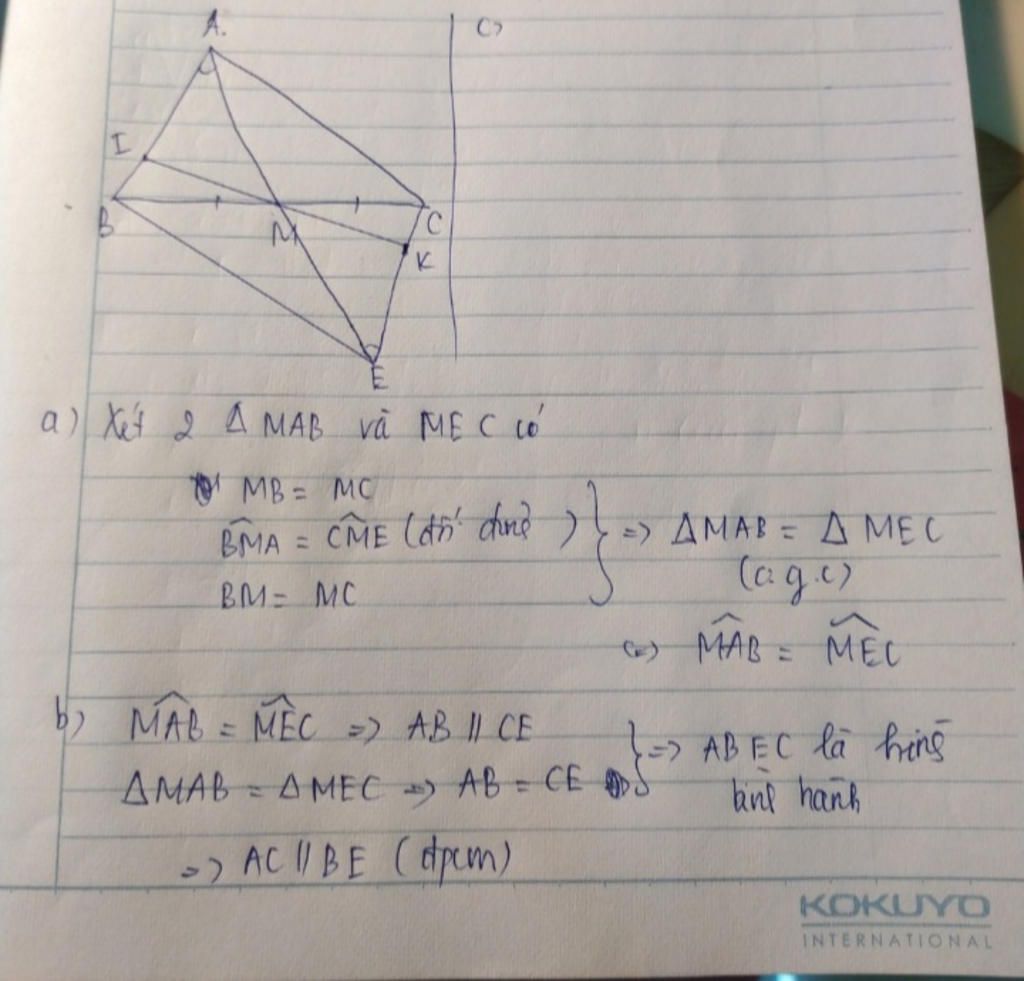 A.
c)
I
B
M
C
K
E
a) Xét 2 Δ MAB và MEC có
MB = MC
BMA = CME (đối đỉnh) => ΔMAB = Δ MEC
BM = MC (c.g.c)
=> MAB = MEC
b) MAB = MEC => AB // CE
ΔMAB = ΔMEC => AB = CE => ABEC là hình
bình hành
=> AC // BE (đpcm)
KOKUYO
INTERNATIONAL